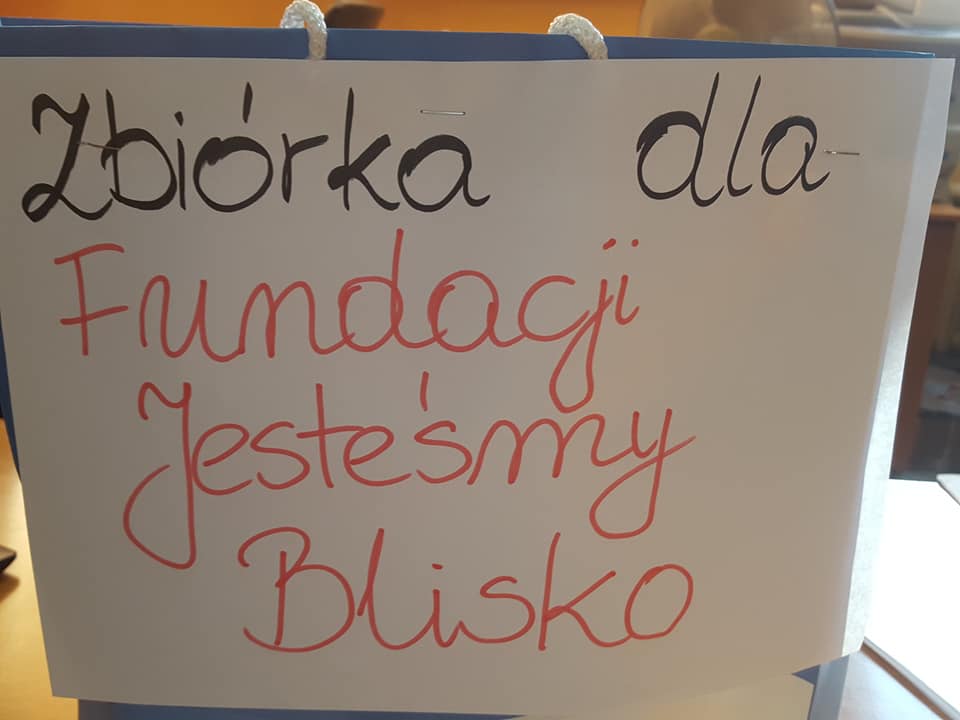 Zbiórka dla
Fundacji
Jesteśmy
Blisko